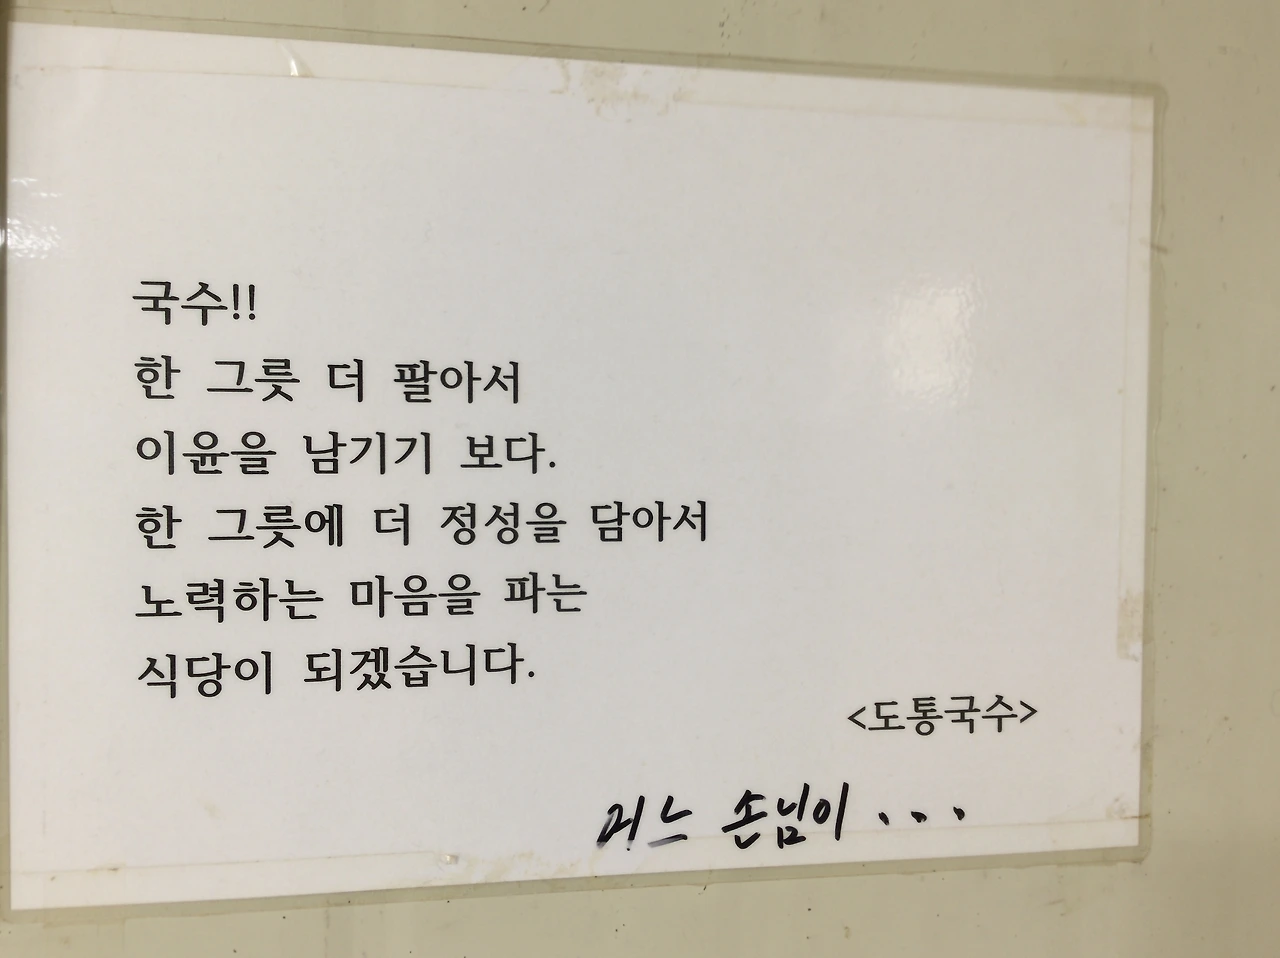 국수!!
한 그릇 더 팔아서
이윤을 남기기 보다.
한 그릇에 더 정성을 담아서
노력하는 마음을 파는
식당이 되겠습니다.
<도통국수>
어느 손님이...